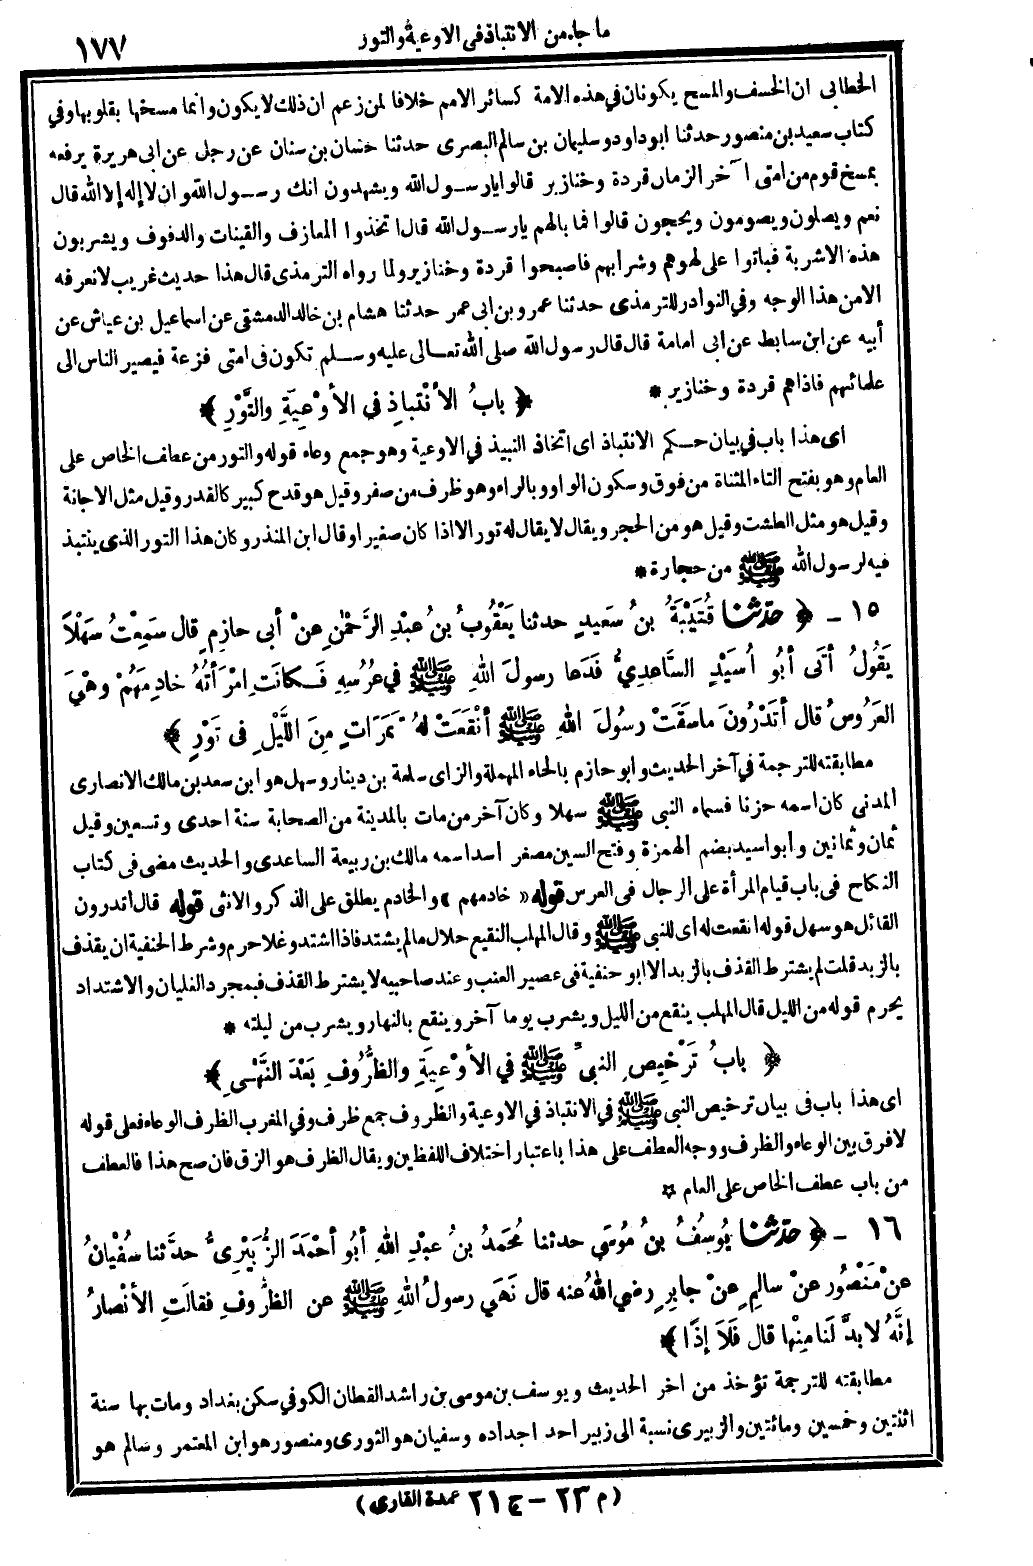 ما جاء من الانتباذ في الاوعية والتور
١٧٧
الخطابي ان الخسف والمسخ يكونان في هذه الامة كسائر الامم خلافا لمن زعم ان ذلك لا يكون وانما مسخها بقلوبها وفي
كتاب سعيد بن منصور حدثنا ابو داود وسليمان بن سالم البصرى حدثنا حسان بن سنان عن رجل عن ابى هريرة يرفعه
يمسخ قوم من امتى آخر الزمان قردة وخنازير قالوا يا رسول الله ويشهدون انك رسول الله وان لا إله إلا الله قال
نعم ويصلون ويصومون ويحجون قالوا فما بالهم يا رسول الله قال اتخذوا المعازف والقينات والدفوف ويشربون
هذه الاشربة فباتوا على لهوهم وشرابهم فاصبحوا قردة وخنازير ولما رواه الترمذى قال هذا حديث غريب لانعرفه
الا من هذا الوجه وفي النوادر للترمذى حدثنا عمرو بن ابى عمر حدثنا هشام بن خالد الدمشقى عن اسماعيل بن عياش عن
أبيه عن ابن سابط عن ابى امامة قال قال رسول الله صلى الله تعالى عليه وسلم تكون فى امتى فزعة فيصير الناس الى
علمائهم فاذاهم قردة وخنازير *
﴿ بابُ الِانْتِباذِ في الأوْعِيَةِ والتَّوْرِ ﴾
اى هذا باب في بيان حكم الانتباذ اى اتخاذ النبيذ في الاوعية وهو جمع وعاء قوله والتور من عطف الخاص على
العام وهو بفتح التاء المثناة من فوق وسكون الواو وبالراء وهو ظرف من صفر وقيل هو قدح كبير كالقدر وقيل مثل الاجانة
وقيل هو مثل الطشت وقيل هو من الحجر ويقال لا يقال له تور الا اذا كان صغيرا وقال ابن المنذر وكان هذا التور الذى ينتبذ
فيه لرسول الله ﷺ من حجارة *
١٥ - ﴿ حدّثنا قُتَيْبَةُ بنُ سَعِيدٍ حدثنا يَعْقُوبُ بنُ عبْدِ الرَّحْمٰنِ عنْ أبي حازِمٍ قال سَمِعْتُ سَهْلاً
يَقُولُ أتَى أبُو أُسَيْدٍ السَّاعِدِيُّ فَدَعا رسولَ اللهِ ﷺ في عُرُسِهِ فَكانَتِ امْرَأتُهُ خادِمَهُمْ وهْيَ
العَرُوسُ قال أتَدْرُونَ ماسَقَتْ رسُولَ اللهِ ﷺ أنْقَعَتْ لهُ تَمَرَاتٍ مِنَ اللَّيْلِ فى تَوْرٍ ﴾
مطابقته للترجمة في آخر الحديث وابو حازم بالحاء المهملة والزاى سلمة بن دينار وسهل هو ابن سعد بن مالك الانصارى
المدنى كان اسمه حزنا فسماه النبى ﷺ سهلا وكان آخر من مات بالمدينة من الصحابة سنة احدى وتسعين وقيل
ثمان وثمانين وأبو اسيد بضم الهمزة وفتح السين مصغر اسد اسمه مالك بن ربيعة الساعدى والحديث مضى فى كتاب
النكاح فى باب قيام المرأة على الرجال فى العرس قوله «خادمهم» والخادم يطلق على الذكر والانثى قوله قال اتدرون
القائل هو سهل قوله انقعت له اى للنبى ﷺ وقال المهلب النقيع حلال مالم يشتد فاذا اشتد وغلا حرم وشرط الحنفية ان يقذف
بالزبد قلت لم يشترط القذف بالزبد الا ابو حنفية فى عصير العنب وعند صاحبيه لا يشترط القذف فبمجرد الغليان والاشتداد
يحرم قوله من الليل قال المهلب ينقع من الليل ويشرب يوما آخر وينقع بالنهار ويشرب من ليلته *
﴿ بابُ تَرْخِيصِ النبيِّ ﷺ في الأوْعِيَةِ والظُّرُوفِ بَعْدَ النَّهْىِ ﴾
اى هذا باب فى بيان ترخيص النبى ﷺ في الانتباذ في الاوعية والظروف جمع ظرف وفي المغرب الظرف الوعاء فعلى قوله
لا فرق بين الوعاء والظرف ووجه العطف على هذا باعتبار اختلاف اللفظين ويقال الظرف هو الزق فان صح هذا فالعطف
من باب عطف الخاص على العام *
١٦ - ﴿ حدّثنا يُوسُفُ بنُ مُوسَى حدثنا مُحَمدُ بنُ عبْدِ اللهِ أبُو أحْمَدَ الزُّبَيْرِىُّ حدَّثنا سُفْيانُ
عنْ مَنْصُورٍ عنْ سالِمٍ عنْ جابِرٍ رضي اللهُ عنه قال نَهَى رسولُ اللهِ ﷺ عن الظُّرُوفِ فقالَتِ الأنْصارُ
إنَّهُ لا بدَّ لَنا مِنْها قال فَلاَ إذًا ﴾
مطابقته للترجمة تؤخذ من اخر الحديث ويوسف بن موسى بن راشد القطان الكوفي سكن بغداد ومات بها سنة
اثنتين وخمسين ومائتين والزبيرى نسبة الى زبير احد اجداده وسفيان هو الثورى ومنصور هو ابن المعتمر وسالم هو
(م ٢٣ - ج ٢١ عمدة القارى)